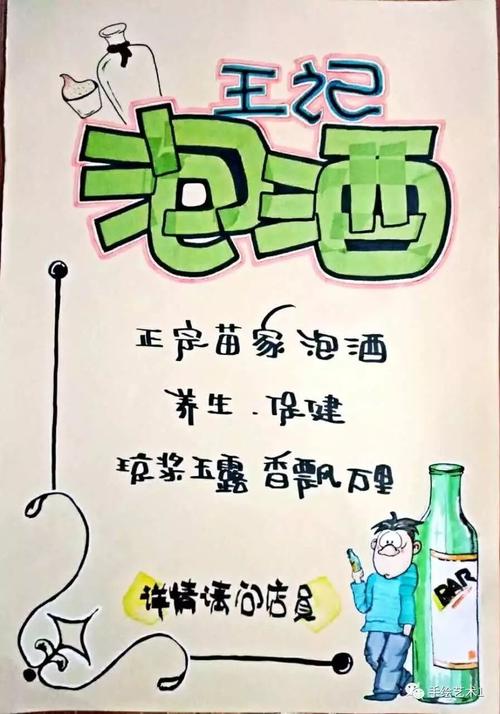 王记
泡酒
正定苗家泡酒
养生.保健
琼浆玉露 香飘万里
详情请问店员
BAR
手绘艺术1